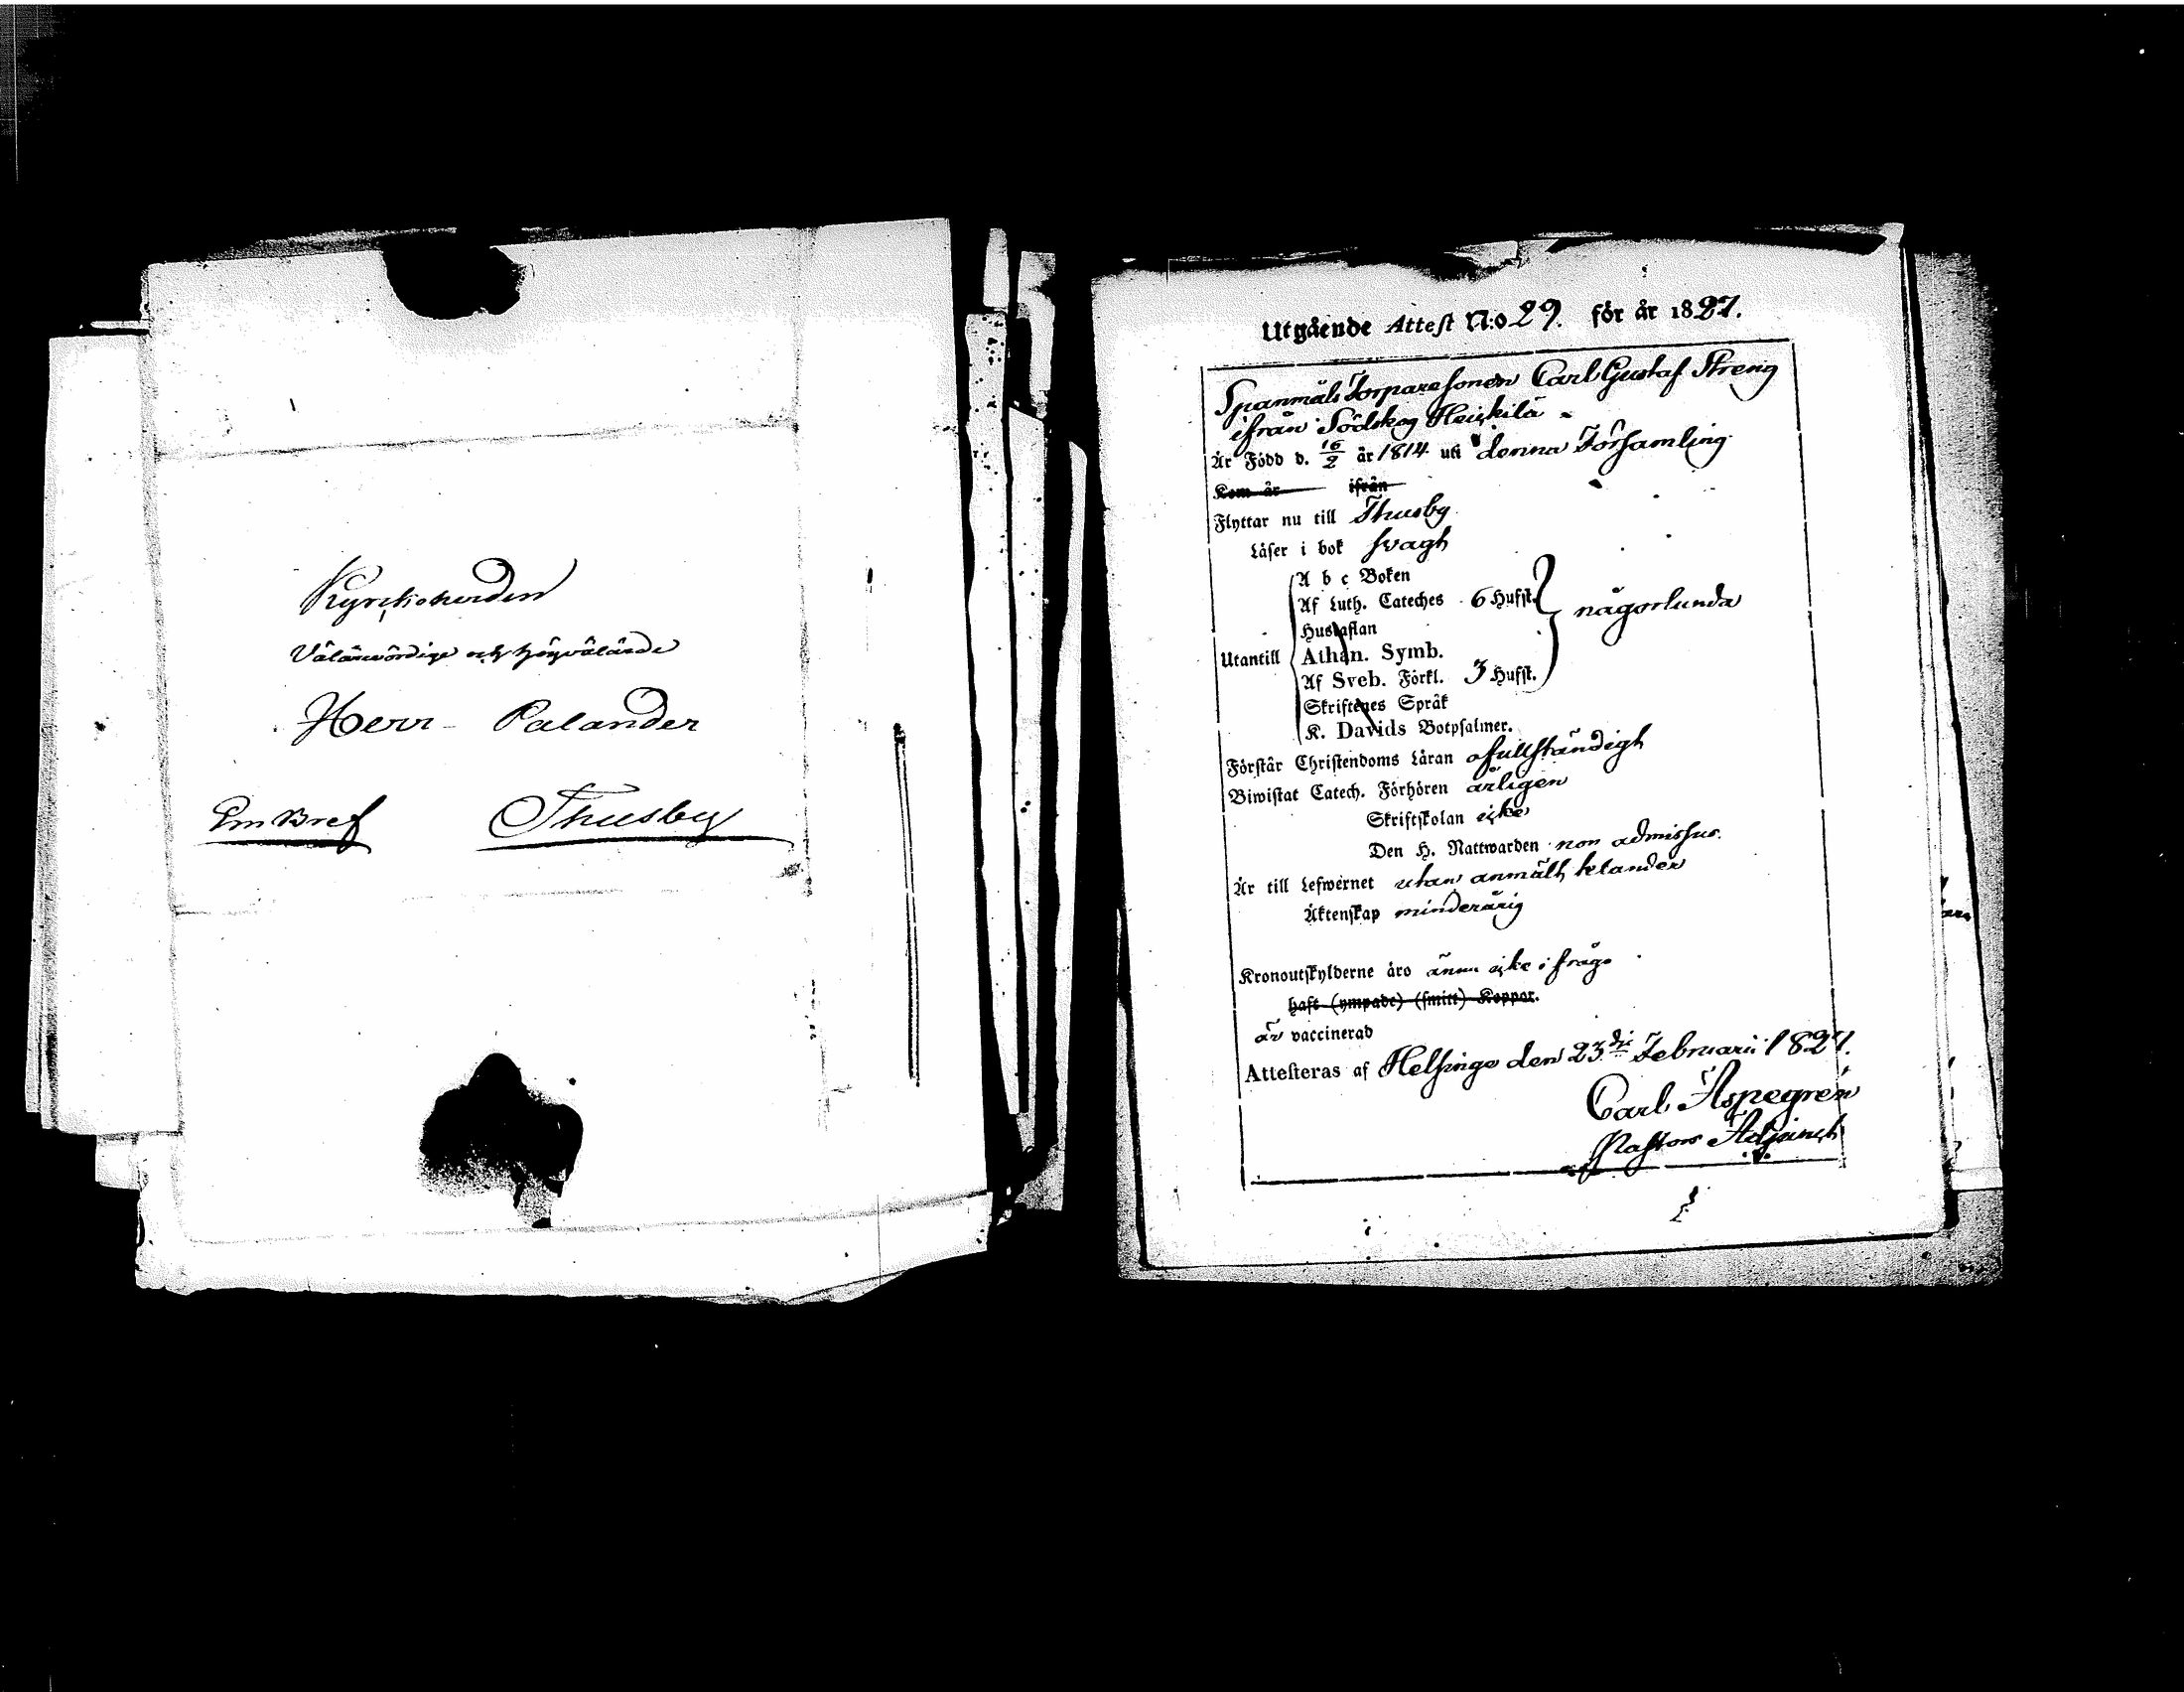 Kyrckoherden
Välärevördige och Högvälärde
Herr Palander
Em Bref Thusby
Utgående Attest N:o 29. för år 1827.
Spanmåls Torparesonen Carl Gustaf Streng
ifrån Södskog Heickilä
Är Född d. 16/2 år 1814 uti denna Församling
Kom år ifrån
Flyttar nu till Thusby
Läser i bok svagt
A b c Boken
Af Luth. Cateches 6 Hufst.
någorlunda
Hustaflan
Utantill
Athan. Symb.
Af Sveb. Förkl. 3 Hufst.
Skriftenes Språk
K. Davids Botpsalmer.
Förstår Christendoms Läran ofullständigt
Biwistat Catech. Förhören årligen
Skriftskolan icke
Den H. Nattwarden non admissus.
Är till Lefwernet utan anmält klander
Äktenskap minderårig
Kronoutskylderne äro ännu icke i fråga
haft (ympade) (smitt) Koppor.
är vaccinerad
Attesteras af Helsinge den 23die Februarii 1827.
Carl Aspegren
Pastors Adjunct